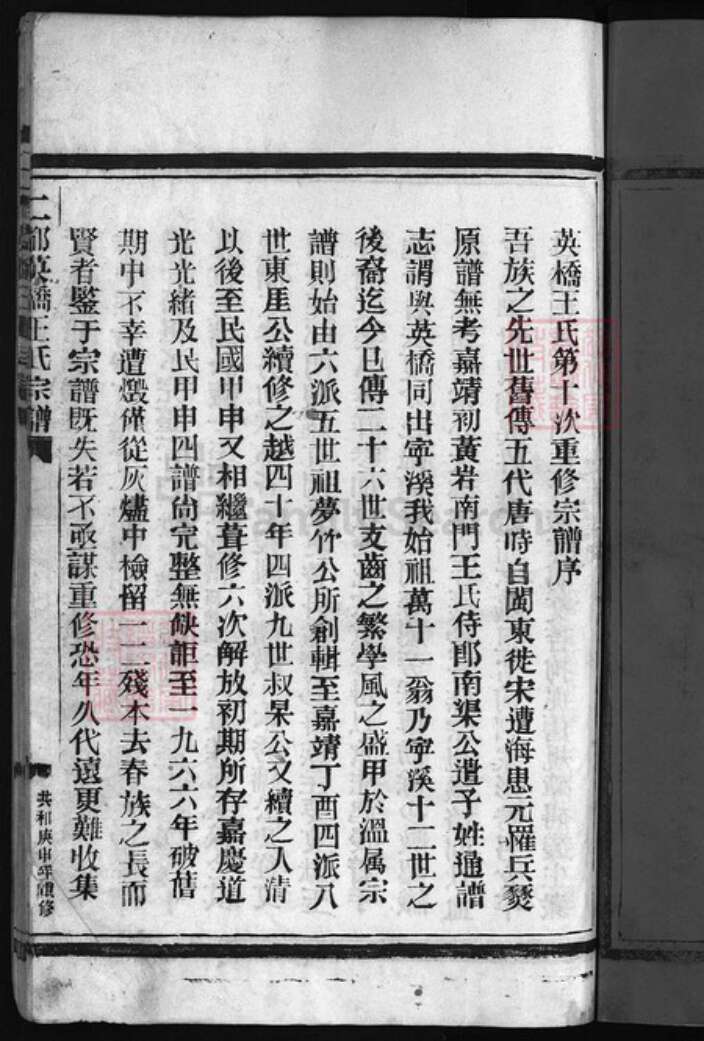 英橋王氏第十次重修宗譜序
吾族之先世舊傳五代唐時自閩東徙宋遭海患元罹兵燹
原譜無考嘉靖初黃岩南門王氏侍郎南渠公遣子姓通譜
志謂與英橋同出寧溪我始祖萬十一翁乃寧溪十二世之
後裔迄今已傳二十六世支齒之繁學風之盛甲於溫属宗
譜則始由六派五世祖夢竹公所創輯至嘉靖丁酉四派八
世東厓公續修之越四十年四派九世叔杲公又續之入清
以後至民國甲申又相繼葺修六次解放初期所存嘉慶道
光光緒及民甲申四譜尙完整無缺詎至一九六六年破舊
期中不幸遭燬僅從灰燼中檢留一二殘本去春族之長而
賢者鉴于宗譜既失若不亟謀重修恐年久代遠更難收集
二都英橋王氏宗譜
共和庚申年重修